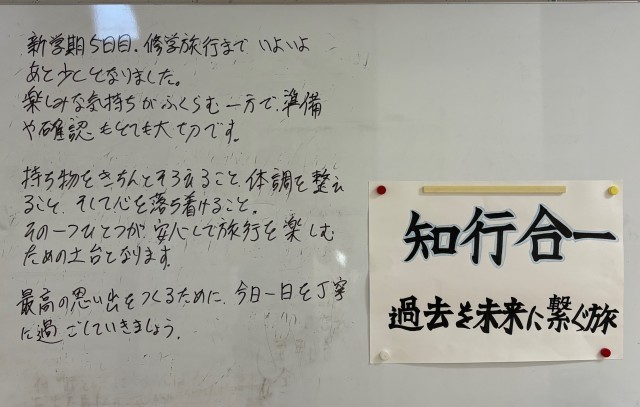 新学期5日目、修学旅行まで いよいよ
あと少しとなりました。
楽しみな気持ちがふくらむ一方で、準備
や確認もとても大切です。
持ち物をきちんとそろえること、体調を整え
ること、そして心を落ち着けること。
その一つひとつが安心して旅行を楽しむ
ための土台となります。
最高の思い出をつくるために、今日一日を丁寧
に過ごしていきましょう。
知行合一
過去を未来に繋ぐ旅